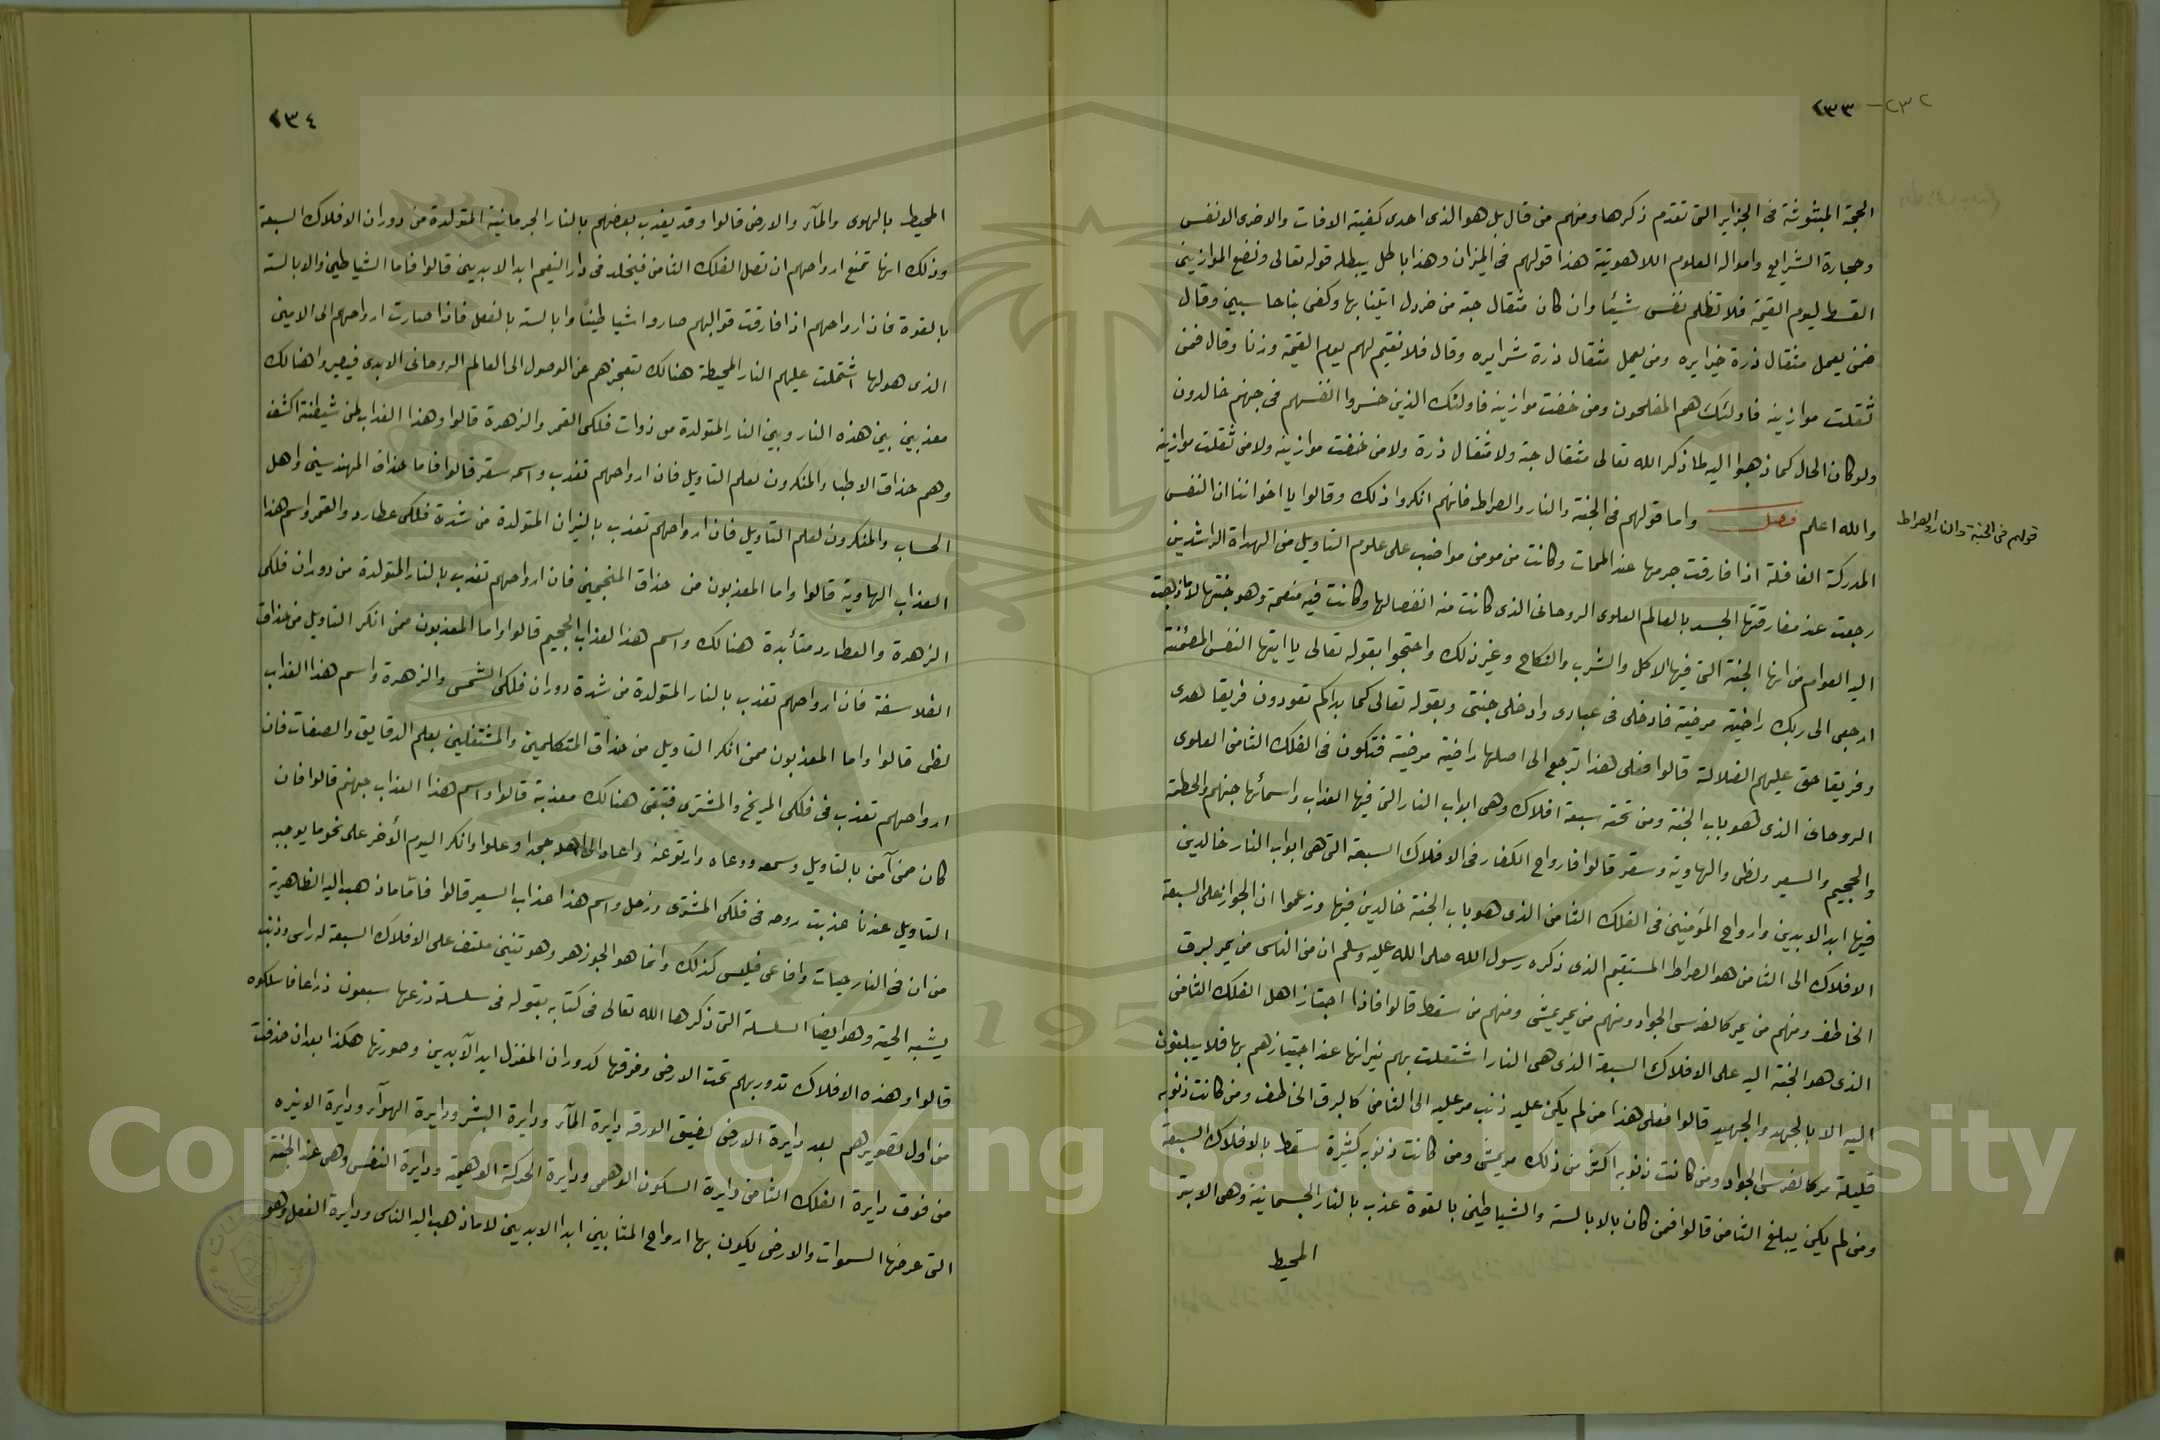 ٢٣٢ - ٢٣٣
الحجة المبثوثة في الجزاير التي تقدم ذكرها ومنهم من قال بل هو الذي احدى كفيته الافات والاخرى الانفس
وحجارة الشرايع وامواله العلوم اللاهوتية هذا قولهم في الميزان وهذا باطل يبطله قوله تعالى ونضع الموازين
القسط ليوم القيمة فلا تظلم نفس شيئا وان كان مثقال حبة من خردل اتينا بها وكفى بنا حاسبين وقال
فمن يعمل مثقال ذرة خيرا يره ومن يعمل مثقال ذرة شرا يره وقال فلا نقيم لهم يوم القيمة وزنا وقال فمن
ثقلت موازينه فاولئك هم المفلحون ومن خفت موازينه فاولئك الذين خسروا انفسهم في جهنم خالدون
ولو كان الحال كما ذهبوا اليه لما ذكر الله تعالى مثقال حبة ولا مثقال ذرة ولا من خفت موازينه ولا من ثقلت موازينه
والله اعلم فصل واما قولهم في الجنة والنار والصراط فانهم انكروا ذلك وقالوا يا اخواننا ان النفس
قولهم في الجنة والنار والصراط
المدركة الغافلة اذا فارقت جرمها عند الممات وكانت من مومن مواضب على علوم التاويل من الهداة الراشدين
رجعت عند مفارقتها الجسد بالعالم العلوى الروحانى الذى كانت منه انفصالها وكانت فيه منعمة وهو جنتها لا ما ذهبت
اليه العوام من انها الجنة التي فيها الاكل والشرب والنكاح وغير ذلك واحتجوا بقوله تعالى يا ايتها النفس المطمئنة
ارجعى الى ربك راضية مرضية فادخلى في عبادى وادخلى جنتى وبقوله تعالى كما بداكم تعودون فريقا هدى
وفريقا حق عليهم الضلالة قالوا فعلى هذا ترجع الى اصلها راضية مرضية فتكون في الفلك الثامن العلوى
الروحانى الذى هو باب الجنة ومن تحته سبعة افلاك وهى ابواب النار التي فيها العذاب واسمائها جهنم والحطمة
والجحيم والسعير ولظى والهاوية وسقر قالوا فارواح الكفار في الافلاك السبعة التي هى ابواب النار خالدين
فيها ابد الابدين وارواح المؤمنين في الفلك الثامن الذى هو باب الجنة خالدين فيها وزعموا ان الجواز على السبعة
الافلاك الى الثامن هو الصراط المستقيم الذى ذكره رسول الله صلى الله عليه وسلم ان من الناس من يمر كالبرق
الخاطف ومنهم من يمر كالفرس الجواد ومنهم من يمر يمشى ومنهم من سقط قالوا فاذا اجتاز اهل الفلك الثامن
الذى هو الجنة اليه على الافلاك السبعة الذى هى النار اشتعلت بهم نيرانها عند اجتيازهم بها فلا يبلغون
اليه الا بالجهد والجهيد قالوا فعلى هذا من لم يكن عليه ذنب مر عليه الى الثامن كالبرق الخاطف ومن كانت ذنوبه
قليلة مر كالفرس الجواد ومن كانت ذنوبه اكثر من ذلك مر يمشى ومن كانت ذنوبه كثيرة سقط بالافلاك السبعة
ومن لم يكن يبلغ الثامن قالوا فمن كان بالابالسة والشياطين بالقوة عذب بالنار الجسمانية وهى الاثير
المحيط
٢٣٤
المحيط بالهوى والمآء والارض قالوا وقد يعذب بعضهم بالنار الجرمانية المتولدة من دوران الافلاك السبعة
وذلك انها تمنع ارواحهم ان تصل الفلك الثامن فيخلد في دار النعيم ابد الابدين قالوا فاما الشياطين والابالسة
بالقوة فان ارواحهم اذا فارقت قوالبهم صاروا شياطينًا وابالسة بالفعل فاذا صارت ارواحهم الى الاثير
الذى هو لها اشتملت عليهم النار المحيطة هنالك تعجزهم عن الوصول الى العالم الروحانى الابدى فيصيروا هنالك
معذبين بين هذه النار وبين النار المتولدة من ذوات فلكى القمر والزهرة قالوا وهذا العذاب لمن شيطنة اكشف
وهم حذاق الاطباء والمنكرون لعلم التاويل فان ارواحهم تعذب واسمه سقر قالوا فاما حذاق المهندسين واهل
الحساب والمنكرون لعلم التاويل فان ارواحهم تعذب بالنيران المتولدة من شدة فلكى عطارد والقمر واسم هذا
العذاب الهاوية قالوا واما المعذبون من حذاق المنجمين فان ارواحهم تعذب بالنار المتولدة من دوران فلكى
الزهرة والعطارد متأبدة هنالك واسم هذا العذاب الجحيم قالوا واما المعذبون ممن انكر التاويل من حذاق
الفلاسفة فان ارواحهم تعذب بالنار المتولدة من شدة دوران فلكى الشمس والزهرة واسم هذا العذاب
لظى قالوا واما المعذبون ممن انكر التاويل من حذاق المتكلمين والمشتغلين بعلم الدقايق والصفات فان
ارواحهم تعذب في فلكى المريخ والمشترى فتبقى هنالك معذبة قالوا واسم هذا العذاب جهنم قالوا فان
كان ممن آمن بالتاويل وسمعه ووعاه وارتوعنه واعاه الى اهله جحدا وعلوا وانكر اليوم الأخر على نحو ما يوجبه
التاويل عندنا عذبت روحه في فلكى المشترى وزحل واسم هذا عذاب السعير قالوا فاما ما ذهب اليه الظاهرية
من ان في النار حيات وافاعى فليس كذلك وانما هو الجوزهر وهو تنين ملتف على الافلاك السبعة له راس وذنب
يشبه الحية وهو ايضا السلسلة التي ذكرها الله تعالى في كتابه بقوله في سلسلة ذرعها سبعون ذراعا فاسلكوه
قالوا وهذه الافلاك تدور بهم تحت الارض وفوقها كدوران المغزل ابد الآبدين وصورتها هكذا بعد ان حذفت
من اول تصويرهم بعد دايرة الارض لضيق الورقه دايرة المآء ودايرة البشر ودايرة الهوآء ودايرة الاثيره
من فوق دايرة الفلك الثامن دايرة السكون الوهمى ودايرة الحركة الوهمية ودايرة النفس وهى عند الجنة
التي عرضها السموات والارض يكون بها ارواح المثابين ابد الابدين لا ما ذهب اليه الناس ودايرة العقل وهو
Copyright © King Saud University
1957